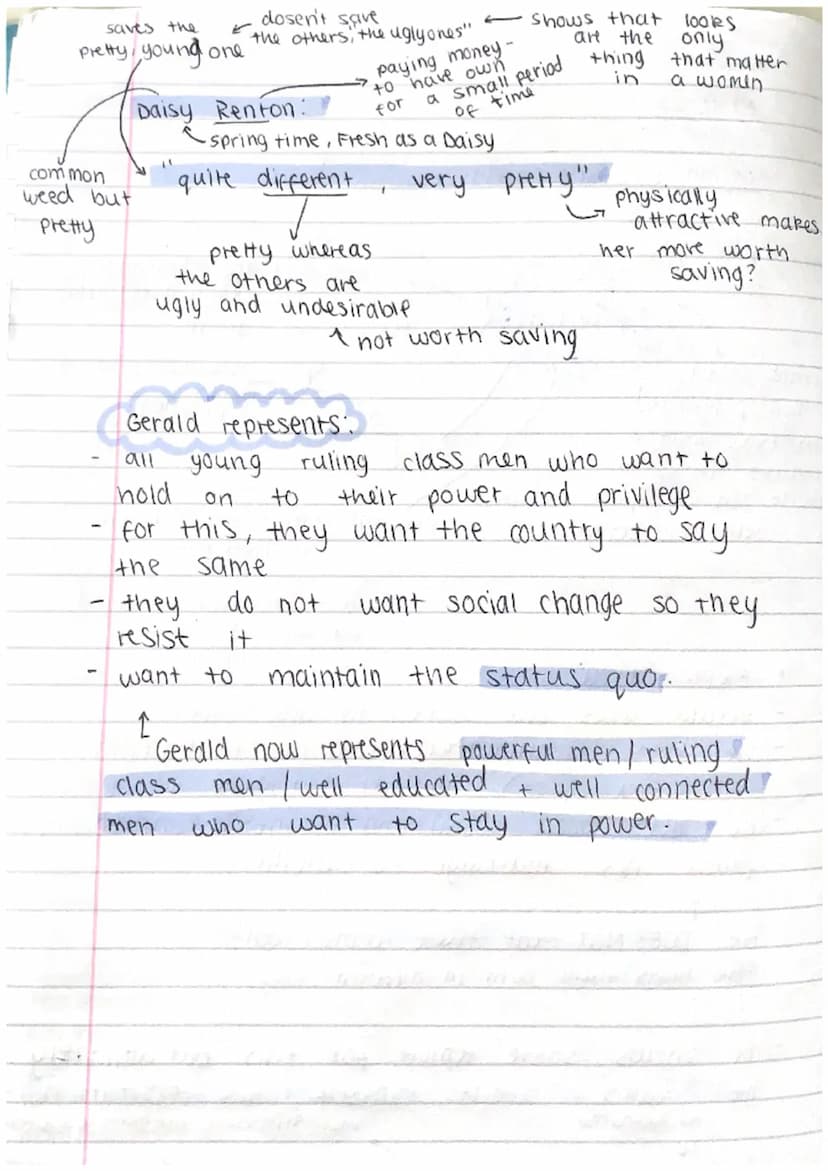 saves the
pretty, young one
dosen't save
the others, "the ugly ones"
shows that looks
are the only
thing that matter
in a women
paying money -
to have own
for a small period
of time
Daisy Renton:
Spring time, Fresh as a Daisy
common
weed but
pretty
"quite different, very pretty"
physically
attractive makes
her more worth
saving?
pretty whereas
the others are
ugly and undesirable
not worth saving
Gerald represents:
- all young ruling class men who want to
hold on to their power and privilege
- for this, they want the country to say
the same
- they do not want social change so they
resist it
- want to maintain the status quo.
Gerald now represents powerful men / ruling
class men / well educated + well connected
men who want to stay in power.